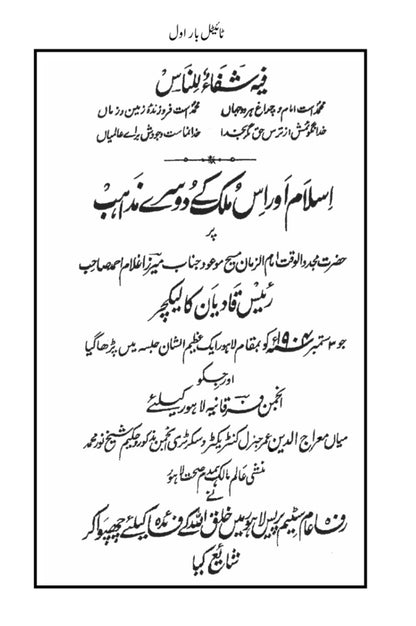 ٹائیٹل بار اول
فیہ شفاءٌ للناس
محمدؐ است امام و چراغ ہر دو جہاں محمدؐ است فروزندۂ زمین و زماں
خدا نگویمش از ترس حق مگر بخدا خدا نماست وجودش برائے عالمیاں
اسلام اور اس ملک کے دوسرے مذاہب
پر
حضرت مجدد الوقت امام الزمان مسیح موعود جناب میرزا غلام احمد صاحب
رئیس قادیان کا لیکچر
جو ۳ ستمبر ۱۹۰۴ء کو بمقام لاہور ایک عظیم الشان جلسہ میں پڑھا گیا
اور جسکو
انجمن فرقانیہ لاہور کیلئے
میاں معراج الدین عمر جنرل کنٹریکٹر و سکرٹری انجمن مذکور و حکیم شیخ نور محمد
منشی عالم مالک ہمدم صحت لاہور
نے
رفاہ عام سٹیم پریس لاہور میں خلق اللہ کے فائدہ کیلئے چھپوا کر
شایع کیا